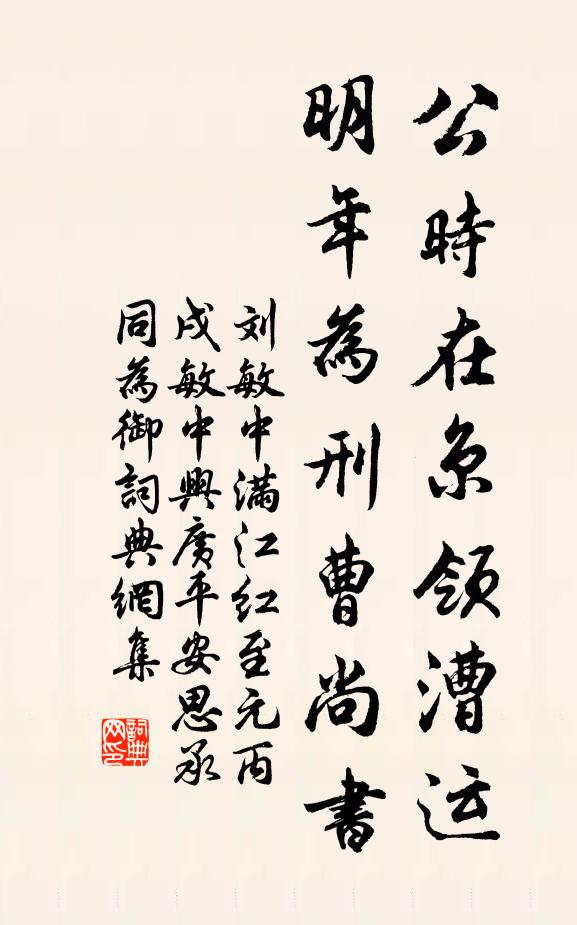 公時在京領漕运
明年為刑曹尚書
刘敏中满江红至元丙
戌敏中興廣平安思承
同為御詞典網集
詞典网印